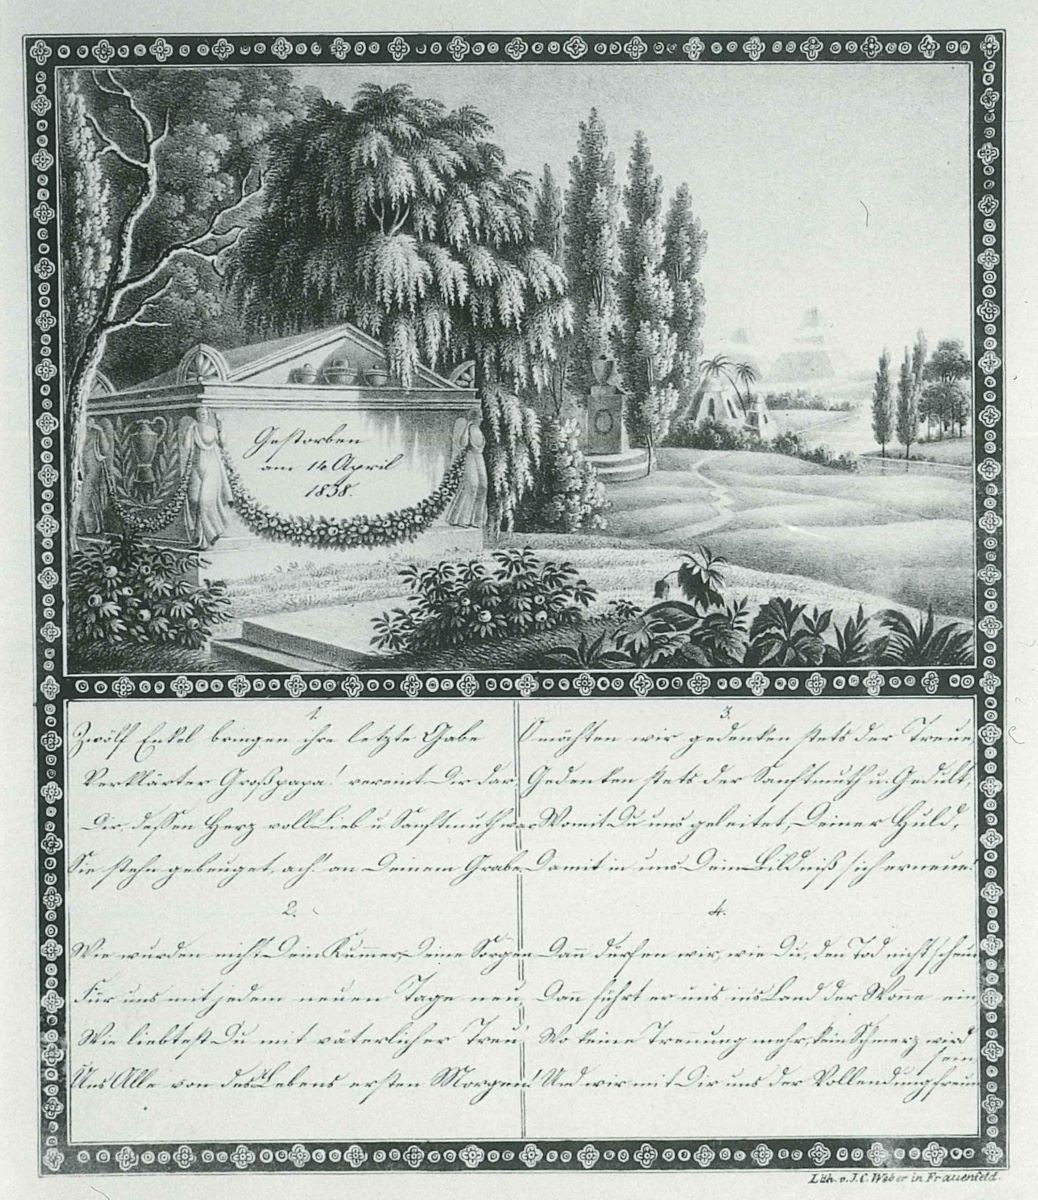 Gestorben
am 14 April
1838.
1.
Zwölf Enkel bringen ihre letzte Gabe
Verklärter Großpapa! vereint Dir dar.
Dir, dessen Herz voll Lieb u Sanftmuth war
Sie stehn gebeuget, ach! an Deinem Grabe
2.
Wie wurden nicht Dein Kummer, Deine Sorgen
Für uns mit jedem neuen Tage neu,
Wie liebtest Du mit väterlicher Treu!
Uns Alle von des Lebens ersten Morgen!
3.
O möchten wir gedenken stets der Treu
Gedenken stets der Sanftmuth u. Gedult,
Womit Du uns geleitet, Deiner Huld,
Damit in uns Dein Bildniß sich erneue!
4.
Dann dürfen wir, wie Du, den Tod nicht scheun
Dann führt er uns ins Land der Wonne ein
Wo keine Trennung mehr, kein Schmerz wird
sein
Und wir mit Dir uns der Vollendung freun
Lith. v. J. C. Weber in Frauenfeld.